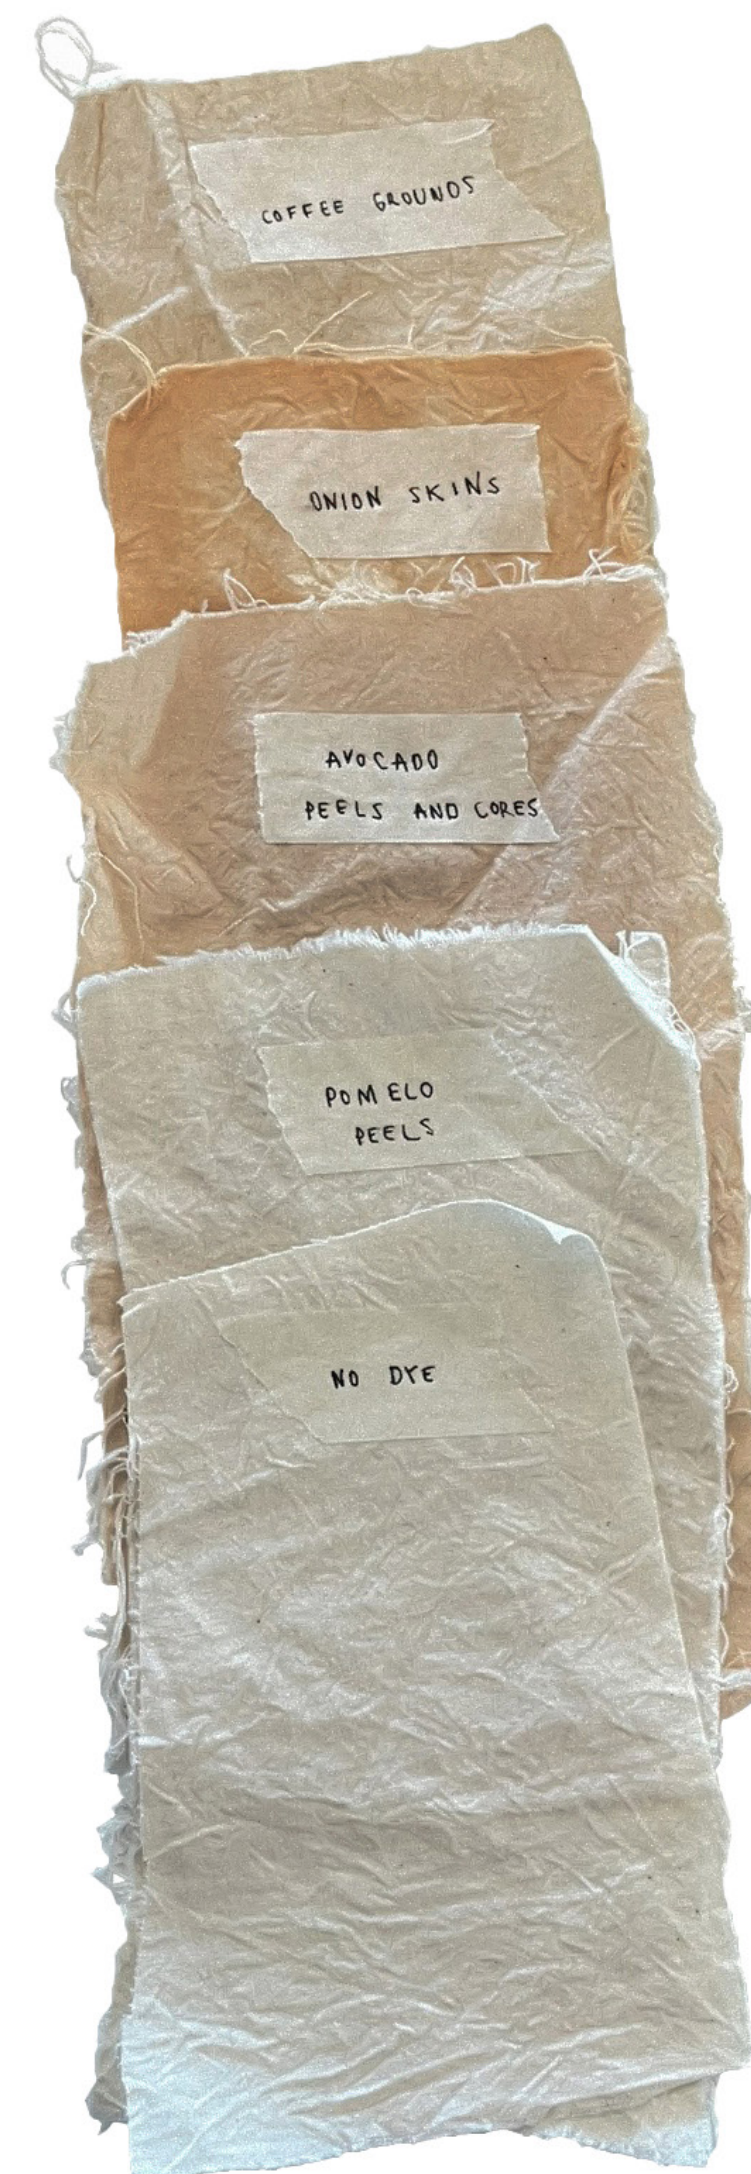 COFFEE GROUNDS
ONION SKINS
AVOCADO
PEELS AND CORES
POMELO
PEELS
NO DYE